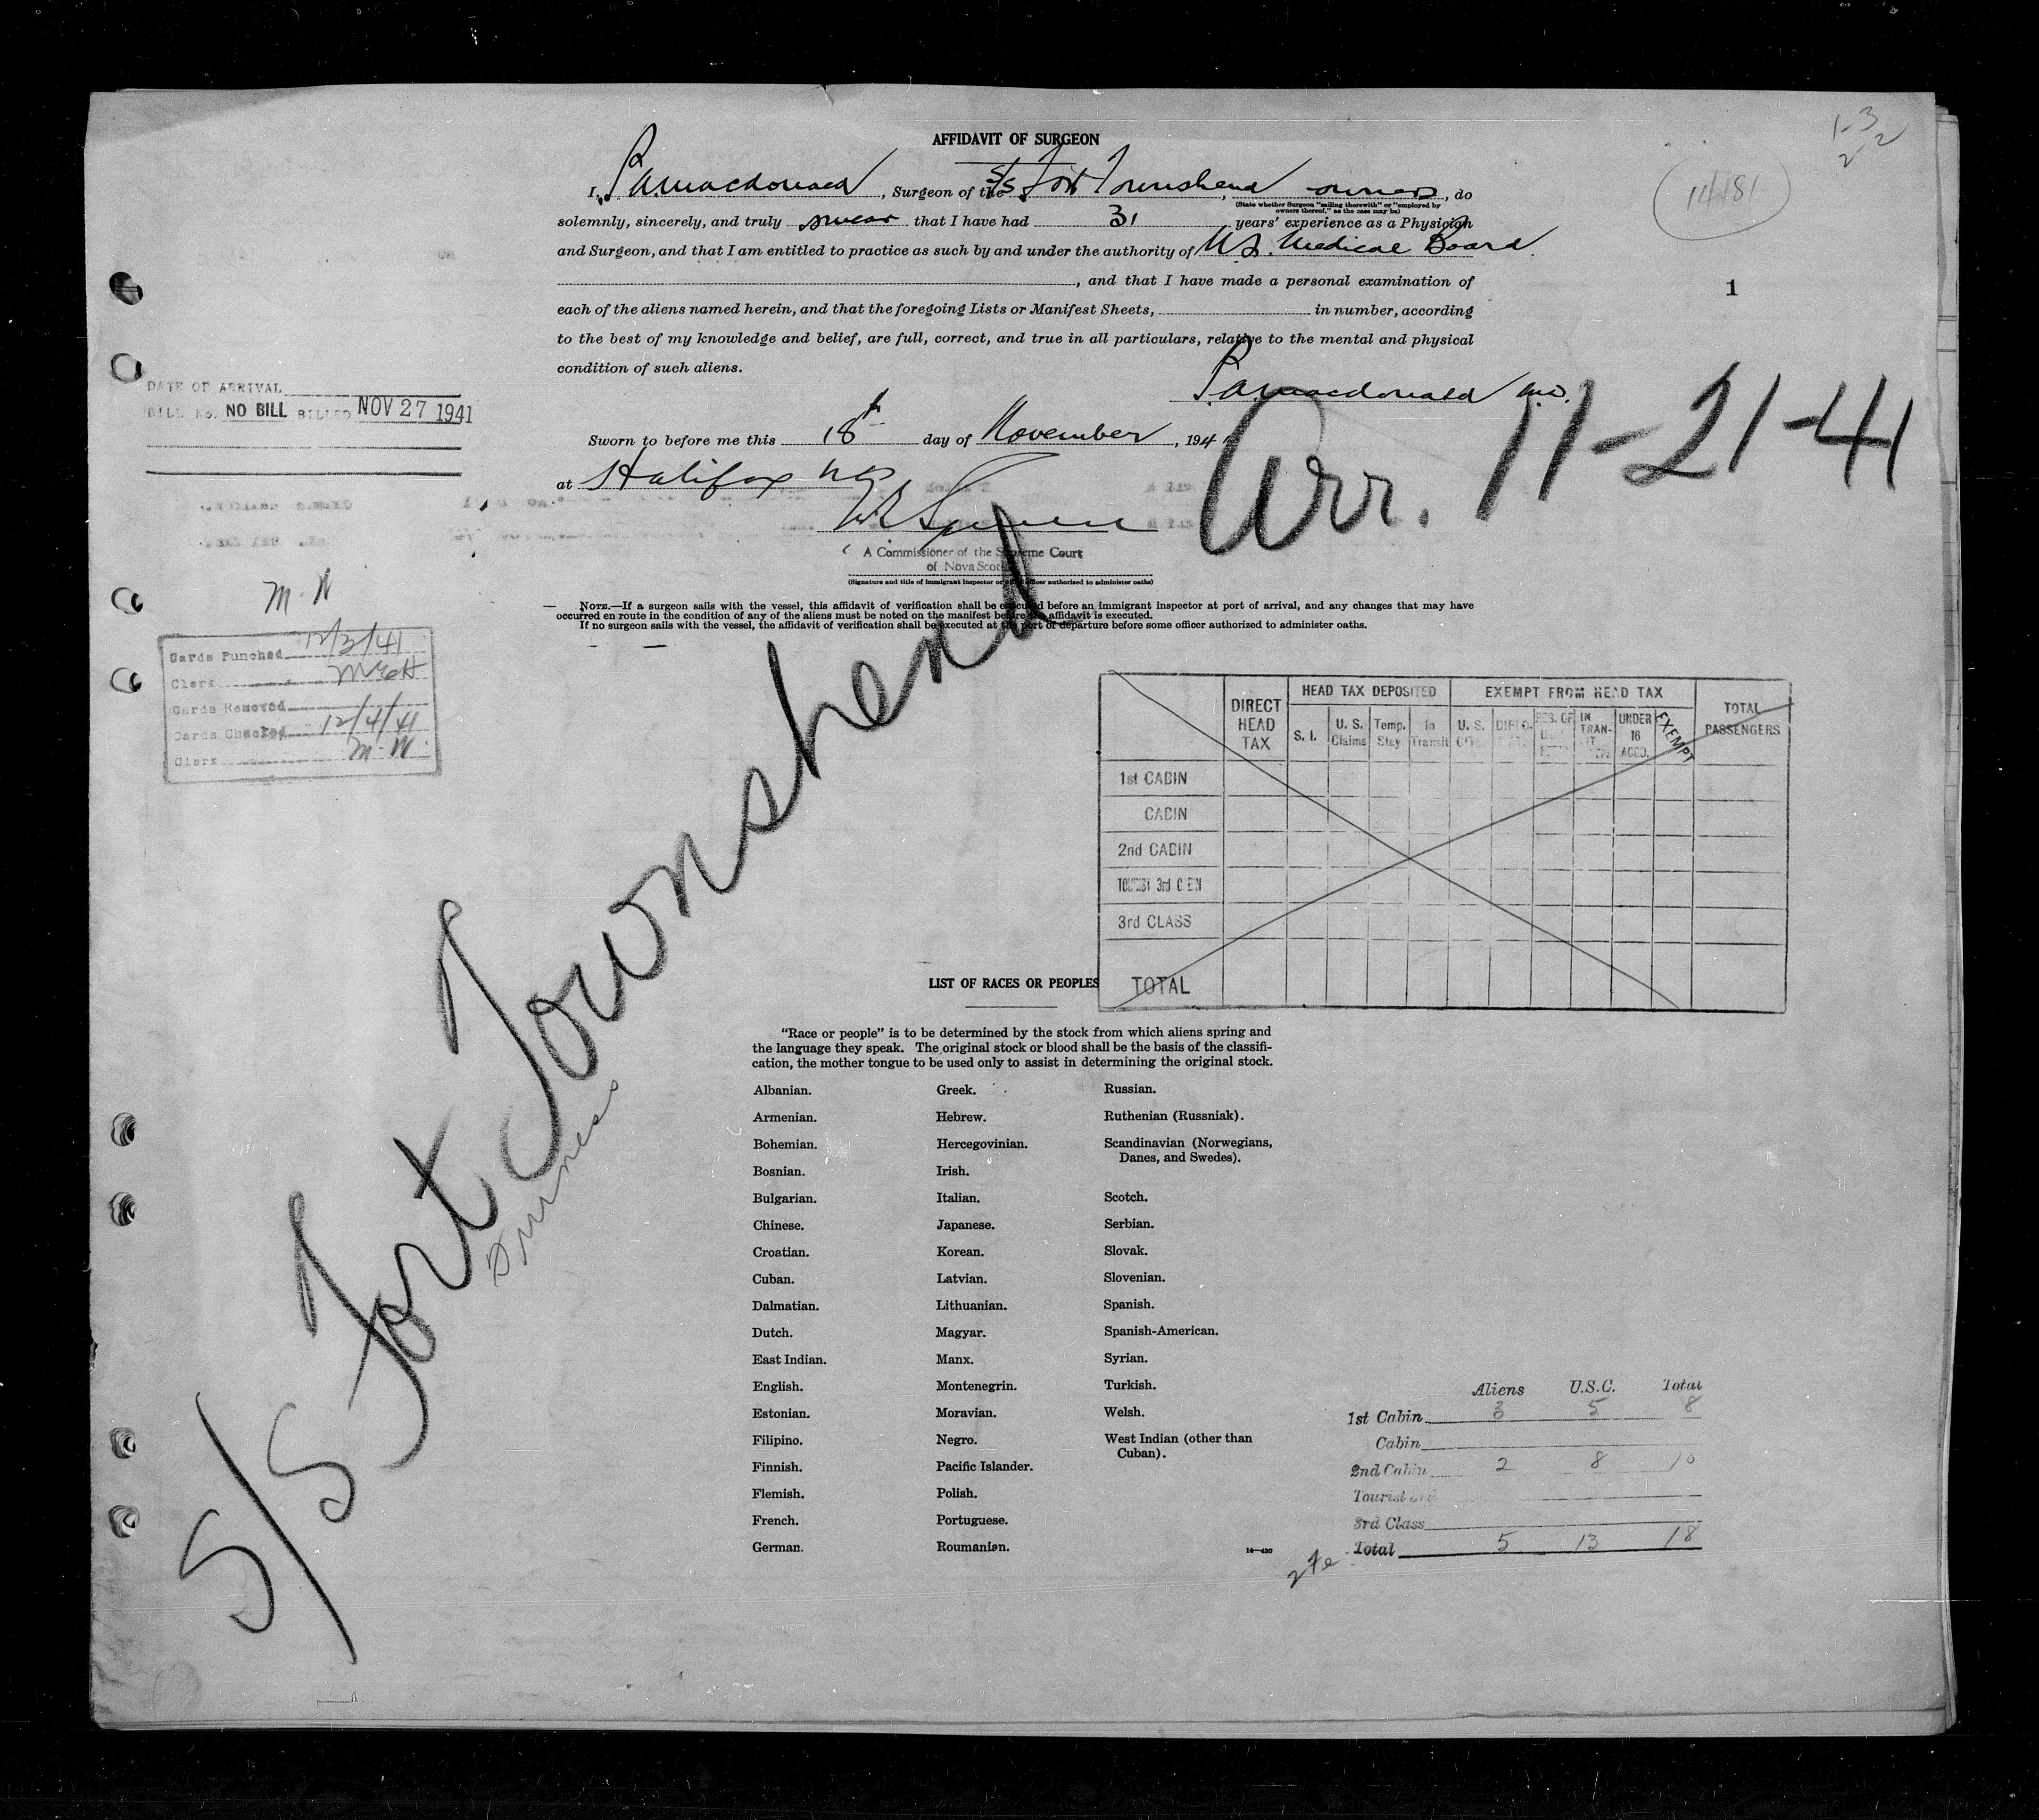 AFFIDAVIT OF SURGEON
1-3
2-2
14181
1
I, P.A. Macdonald, Surgeon of the S/S Fort Townshend, owners, do
(State whether Surgeon "sailing therewith" or "employed by
owners thereof," as the case may be)
solemnly, sincerely, and truly swear that I have had 31 years' experience as a Physician
and Surgeon, and that I am entitled to practice as such by and under the authority of N.S. Medical Board.
, and that I have made a personal examination of
each of the aliens named herein, and that the foregoing Lists or Manifest Sheets, in number, according
to the best of my knowledge and belief, are full, correct, and true in all particulars, relative to the mental and physical
condition of such aliens.
P.A. Macdonald M.D.
DATE OF ARRIVAL
BILL No. NO BILL BILLED NOV 27 1941
Sworn to before me this 18th day of November, 1941
at Halifax N.S.
Arr. 11-21-41
A Commissioner of the Supreme Court
of Nova Scotia
(Signature and title of immigrant inspector or other officer authorized to administer oaths)
NOTE.—If a surgeon sails with the vessel, this affidavit of verification shall be executed before an immigrant inspector at port of arrival, and any changes that may have
occurred en route in the condition of any of the aliens must be noted on the manifest before the affidavit is executed.
If no surgeon sails with the vessel, the affidavit of verification shall be executed at the port of departure before some officer authorized to administer oaths.
M.W
Cards Punched 12/3/41
Clerk
Cards Removed
Cards Checked 12/4/41
Clerk M.W.
S/S Fort Townshend
DIRECT HEAD TAX
HEAD TAX DEPOSITED
S. I.
U. S. Claims
Temp. Stay
In Transit
EXEMPT FROM HEAD TAX
U. S.
DIPLO.
RES. OF
IN TRAN-
UNDER 16 ACCO.
EXEMPT
TOTAL PASSENGERS
1st CABIN
CABIN
2nd CABIN
TOURIST 3rd
3rd CLASS
TOTAL
LIST OF RACES OR PEOPLES
"Race or people" is to be determined by the stock from which aliens spring and
the language they speak. The original stock or blood shall be the basis of the classifi-
cation, the mother tongue to be used only to assist in determining the original stock.
Albanian.
Armenian.
Bohemian.
Bosnian.
Bulgarian.
Chinese.
Croatian.
Cuban.
Dalmatian.
Dutch.
East Indian.
English.
Estonian.
Filipino.
Finnish.
Flemish.
French.
German.
Greek.
Hebrew.
Hercegovinian.
Irish.
Italian.
Japanese.
Korean.
Latvian.
Lithuanian.
Magyar.
Manx.
Montenegrin.
Moravian.
Negro.
Pacific Islander.
Polish.
Portuguese.
Roumanian.
Russian.
Ruthenian (Russniak).
Scandinavian (Norwegians,
Danes, and Swedes).
Scotch.
Serbian.
Slovak.
Slovenian.
Spanish.
Spanish-American.
Syrian.
Turkish.
Welsh.
West Indian (other than
Cuban).
14—430
Aliens U.S.C. Total
1st Cabin 3 5 8
Cabin
2nd Cabin 2 8 10
Tourist
3rd Class
Total 5 13 18